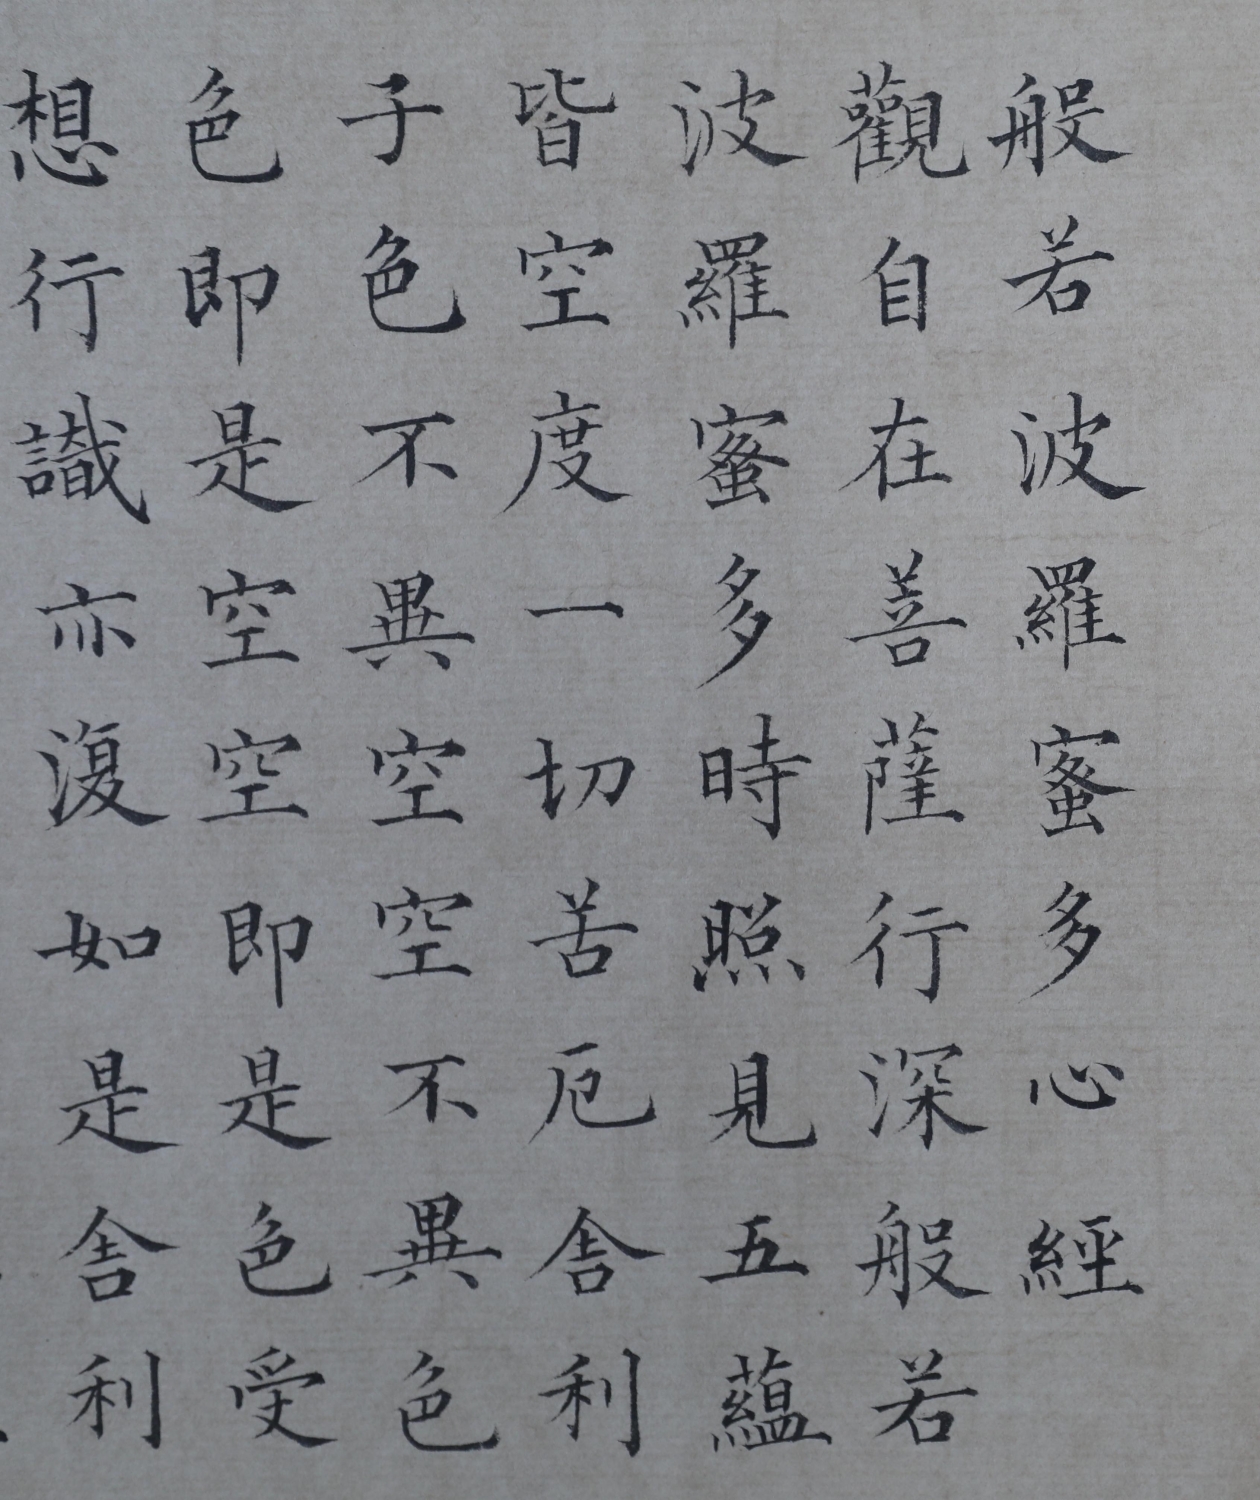 般若波羅蜜多心經
觀自在菩薩行深般若
波羅蜜多時照見五蘊
皆空度一切苦厄舍利
子色不異空空不異色
色即是空空即是色受
想行識亦復如是舍利